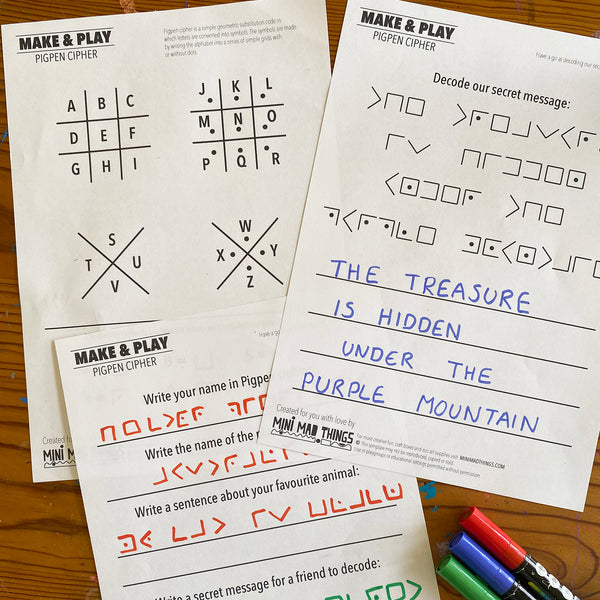 MAKE & PLAY
PIGPEN CIPHER
Pigpen cipher is a simple geometric substitution code in
which letters are converted into symbols. The symbols are made
by writing the alphabet into a series of simple grids with
or without dots.
A B C
D E F
G H I
J K L
M N O
P Q R
S
T U
V
W
X Y
Z
Created for
MINI MA
MAKE & PLAY
PIGPEN CIPHER
Have a go at decoding our se
Decode our secret message:
THE TREASURE
IS HIDDEN
UNDER THE
PURPLE MOUNTAIN
Created for you with love by
MINI MAD THINGS
For more creative fun, craft boxes and art supplies visit MINIMADTHINGS.COM
© This template may not be reproduced, copied or sold.
Use in playgroups or educational settings permitted without permission.
MAKE & PLAY
PIGPEN CIPHER
Have a go
Write your name in Pigpen
Write the name of the
Write a sentence about your favourite animal:
Write a secret message for a friend to decode: